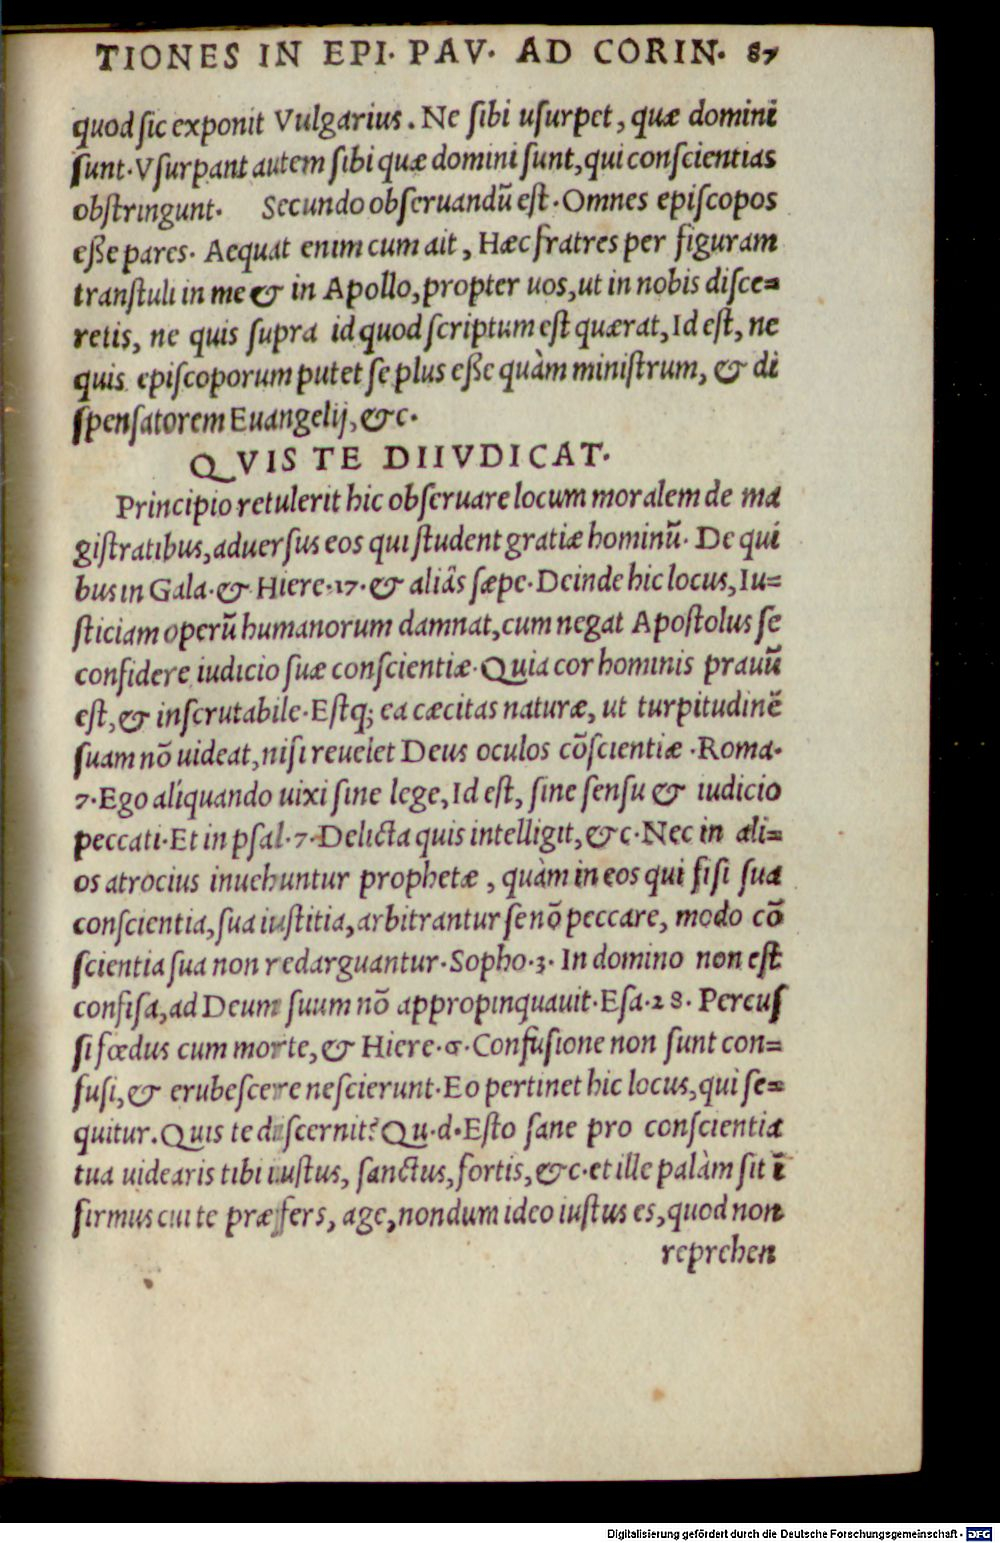 TIONES IN EPI. PAV. AD CORIN. 87
quod sic exponit Vulgarius. Ne sibi usurpet, quæ domini
sunt. Vsurpant autem sibi quæ domini sunt, qui conscientias
obstringunt. Secundo obseruandũ est. Omnes episcopos
eße pares. Aequat enim cum ait, Hæc fratres per figuram
transtuli in me & in Apollo, propter uos, ut in nobis disce=
retis, ne quis supra id quod scriptum est quærat, Id est, ne
quis episcoporum putet se plus eße quàm ministrum, & di
spensatorem Euangelij, &c.
QVIS TE DIIVDICAT.
Principio retulerit hic obseruare locum moralem de ma
gistratibus, aduersus eos qui student gratiæ hominũ. De qui
bus in Gala. & Hiere. 17. & aliâs sæpe. Deinde hic locus, Iu=
sticiam operũ humanorum damnat, cum negat Apostolus se
confidere iudicio suæ conscientiæ. Quia cor hominis prauũ
est, & inscrutabile. Estq; ea cæcitas naturæ, ut turpitudinẽ
suam nõ uideat, nisi reuelet Deus oculos cõscientiæ. Roma.
7. Ego aliquando uixi sine lege, Id est, sine sensu & iudicio
peccati. Et in psal. 7. Delicta quis intelligit, &c. Nec in ali=
os atrocius inuehuntur prophetæ, quàm in eos qui fisi sua
conscientia, sua iustitia, arbitrantur se nõ peccare, modo cõ
scientia sua non redarguantur. Sopho. 3. In domino non est
confisa, ad Deum suum nõ appropinquauit. Esa. 28. Percus
si fœdus cum morte, & Hiere. 6. Confusione non sunt con=
fusi, & erubescere nescierunt. Eo pertinet hic locus, qui se=
quitur. Quis te discernit? Qu. d. Esto sane pro conscientia
tua uidearis tibi iustus, sanctus, fortis, &c. et ille palàm sit ĩ
firmus cui te præfers, age, nondum ideo iustus es, quod non
reprehen
Digitalisierung gefördert durch die Deutsche Forschungsgemeinschaft - DFG